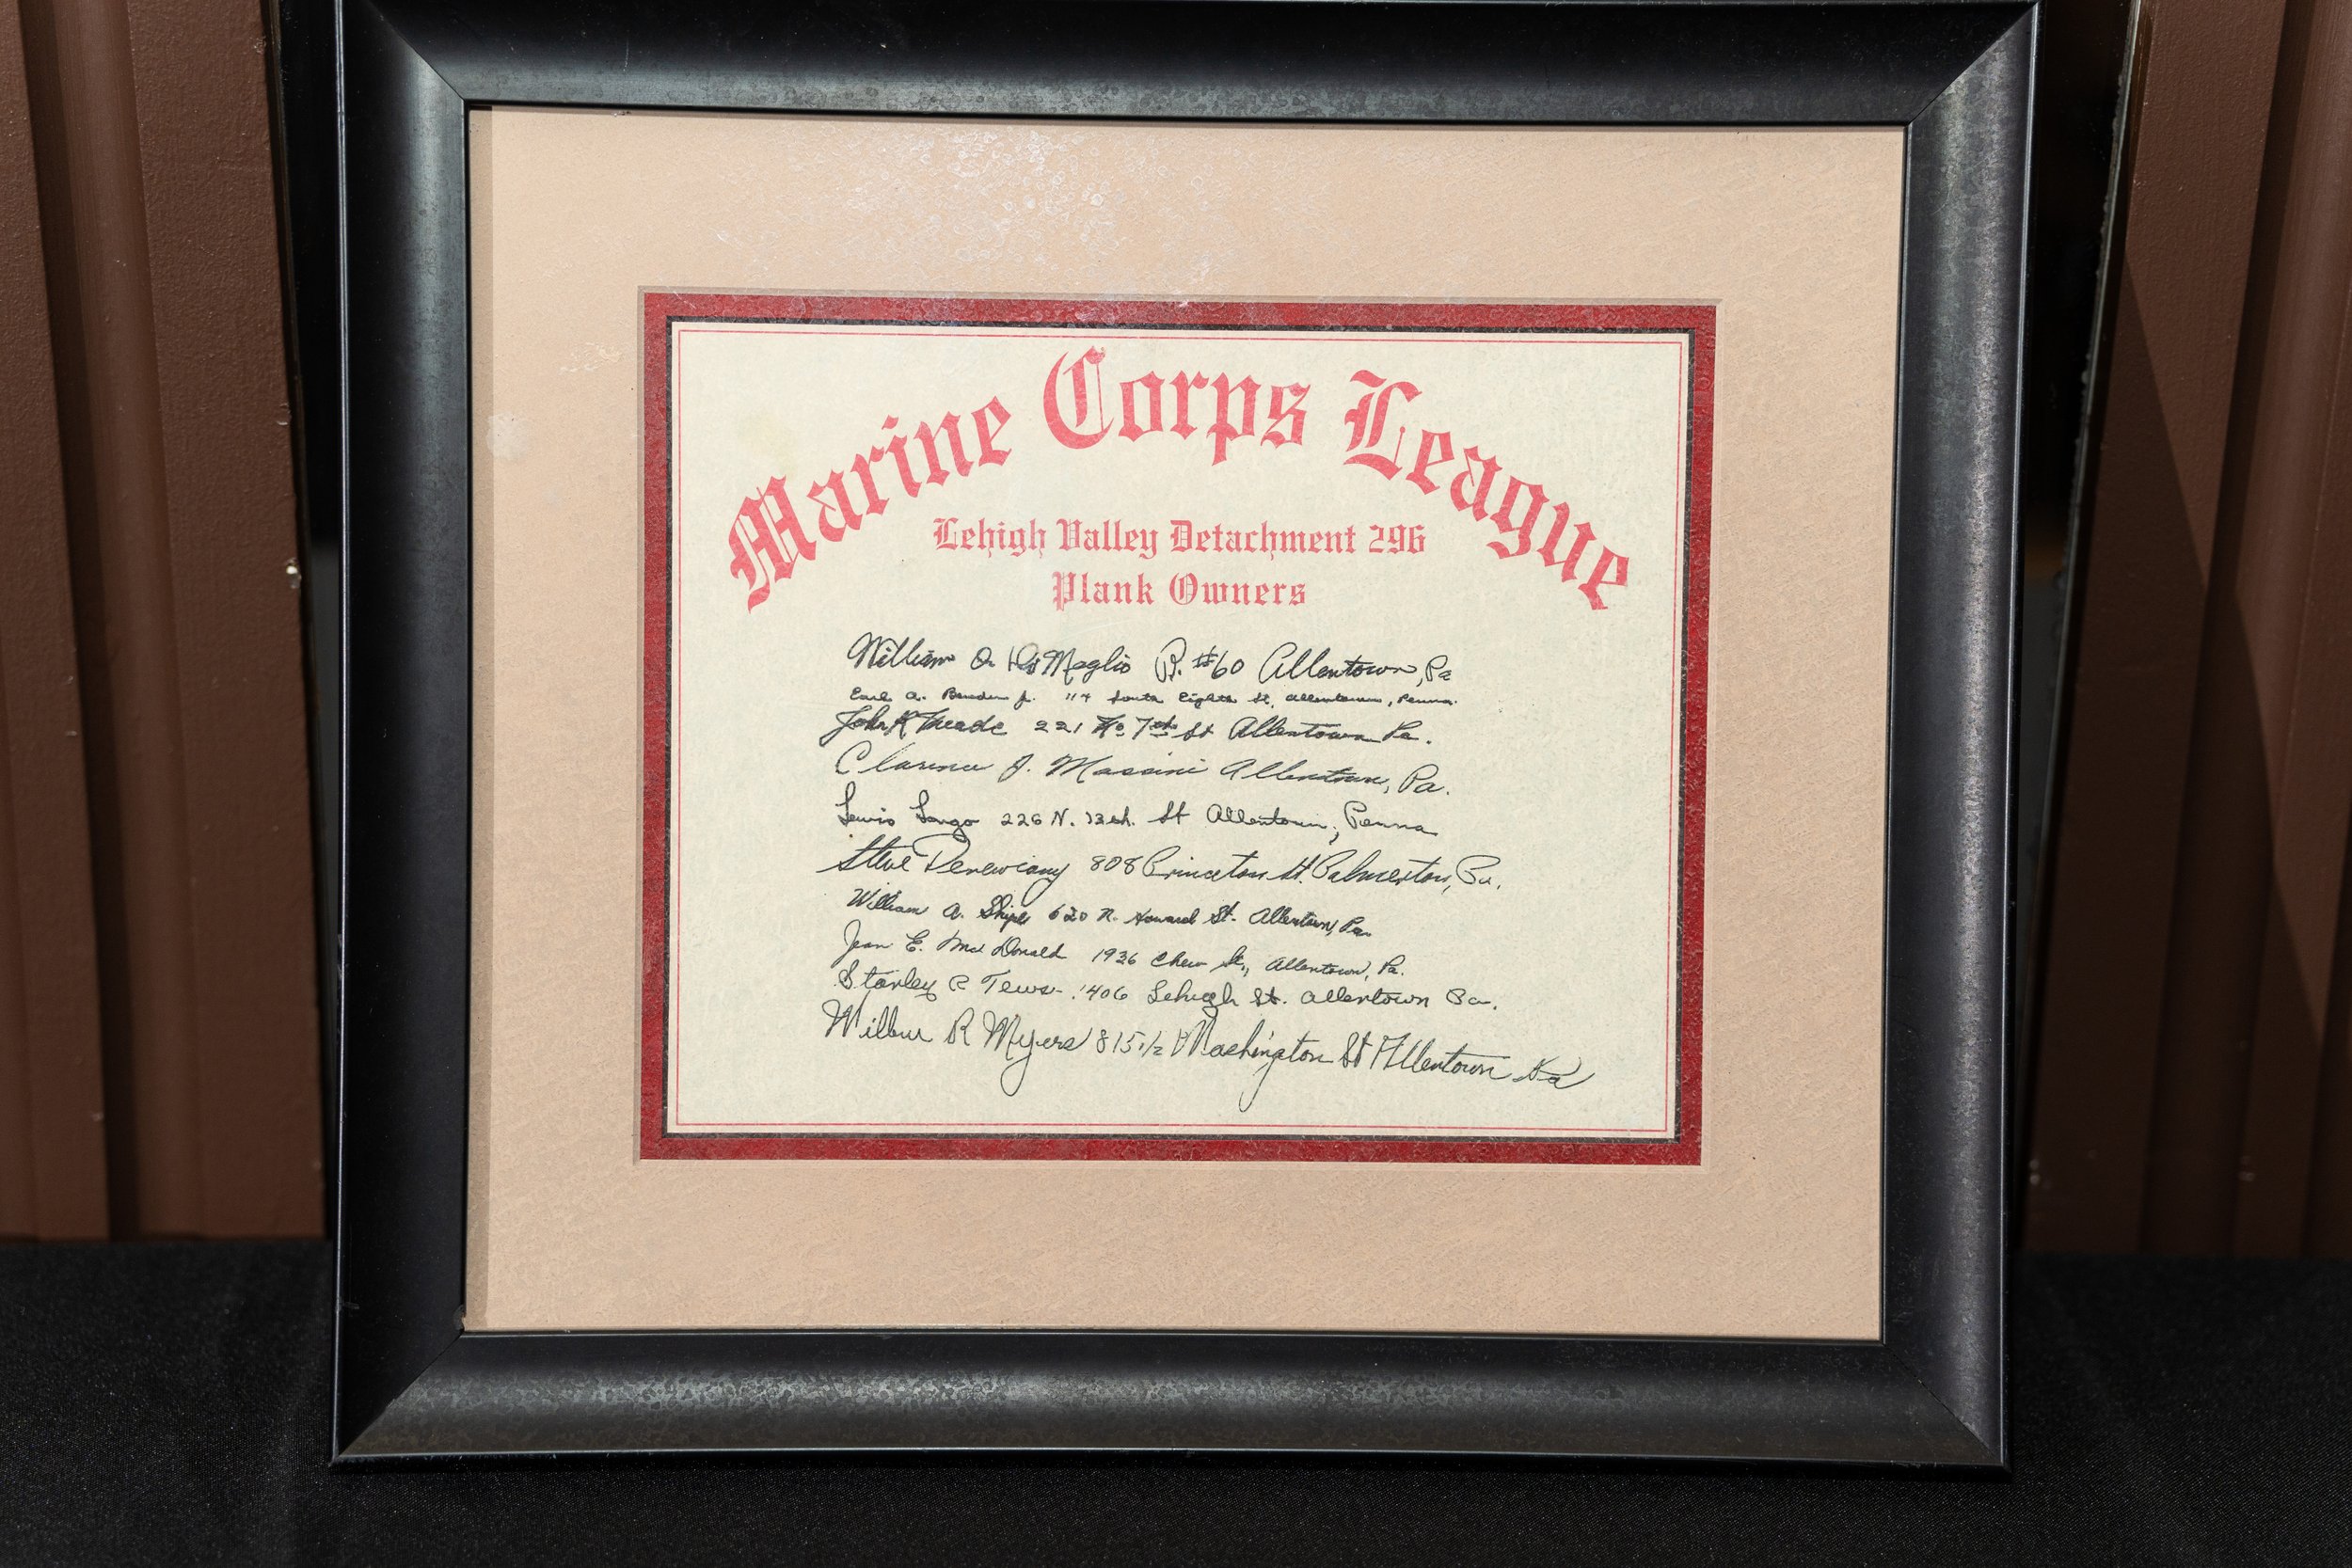 Marine Corps League
Lehigh Valley Detachment 296
Plank Owners
William A. DiMaglio R. #60 Allentown, Pa
Earl A. Bender Jr. 114 South Eighth St, Allentown, Penna.
John R Meade 221 No 7th St Allentown Pa.
Clarence J. Massini Allentown, Pa.
Lewis Longo 226 N. 12th. St Allentown, Penna
Steve 808 Princeton St. Palmerton, Pa.
William A. 620 N. Howard St. Allentown, Pa.
Jean E. Mac Donald 1936 Chew St., Allentown, Pa.
Stanley P Tews 1406 Lehigh St. Allentown Pa.
Wilbur R Myers 815 1/2 Washington St Allentown Pa